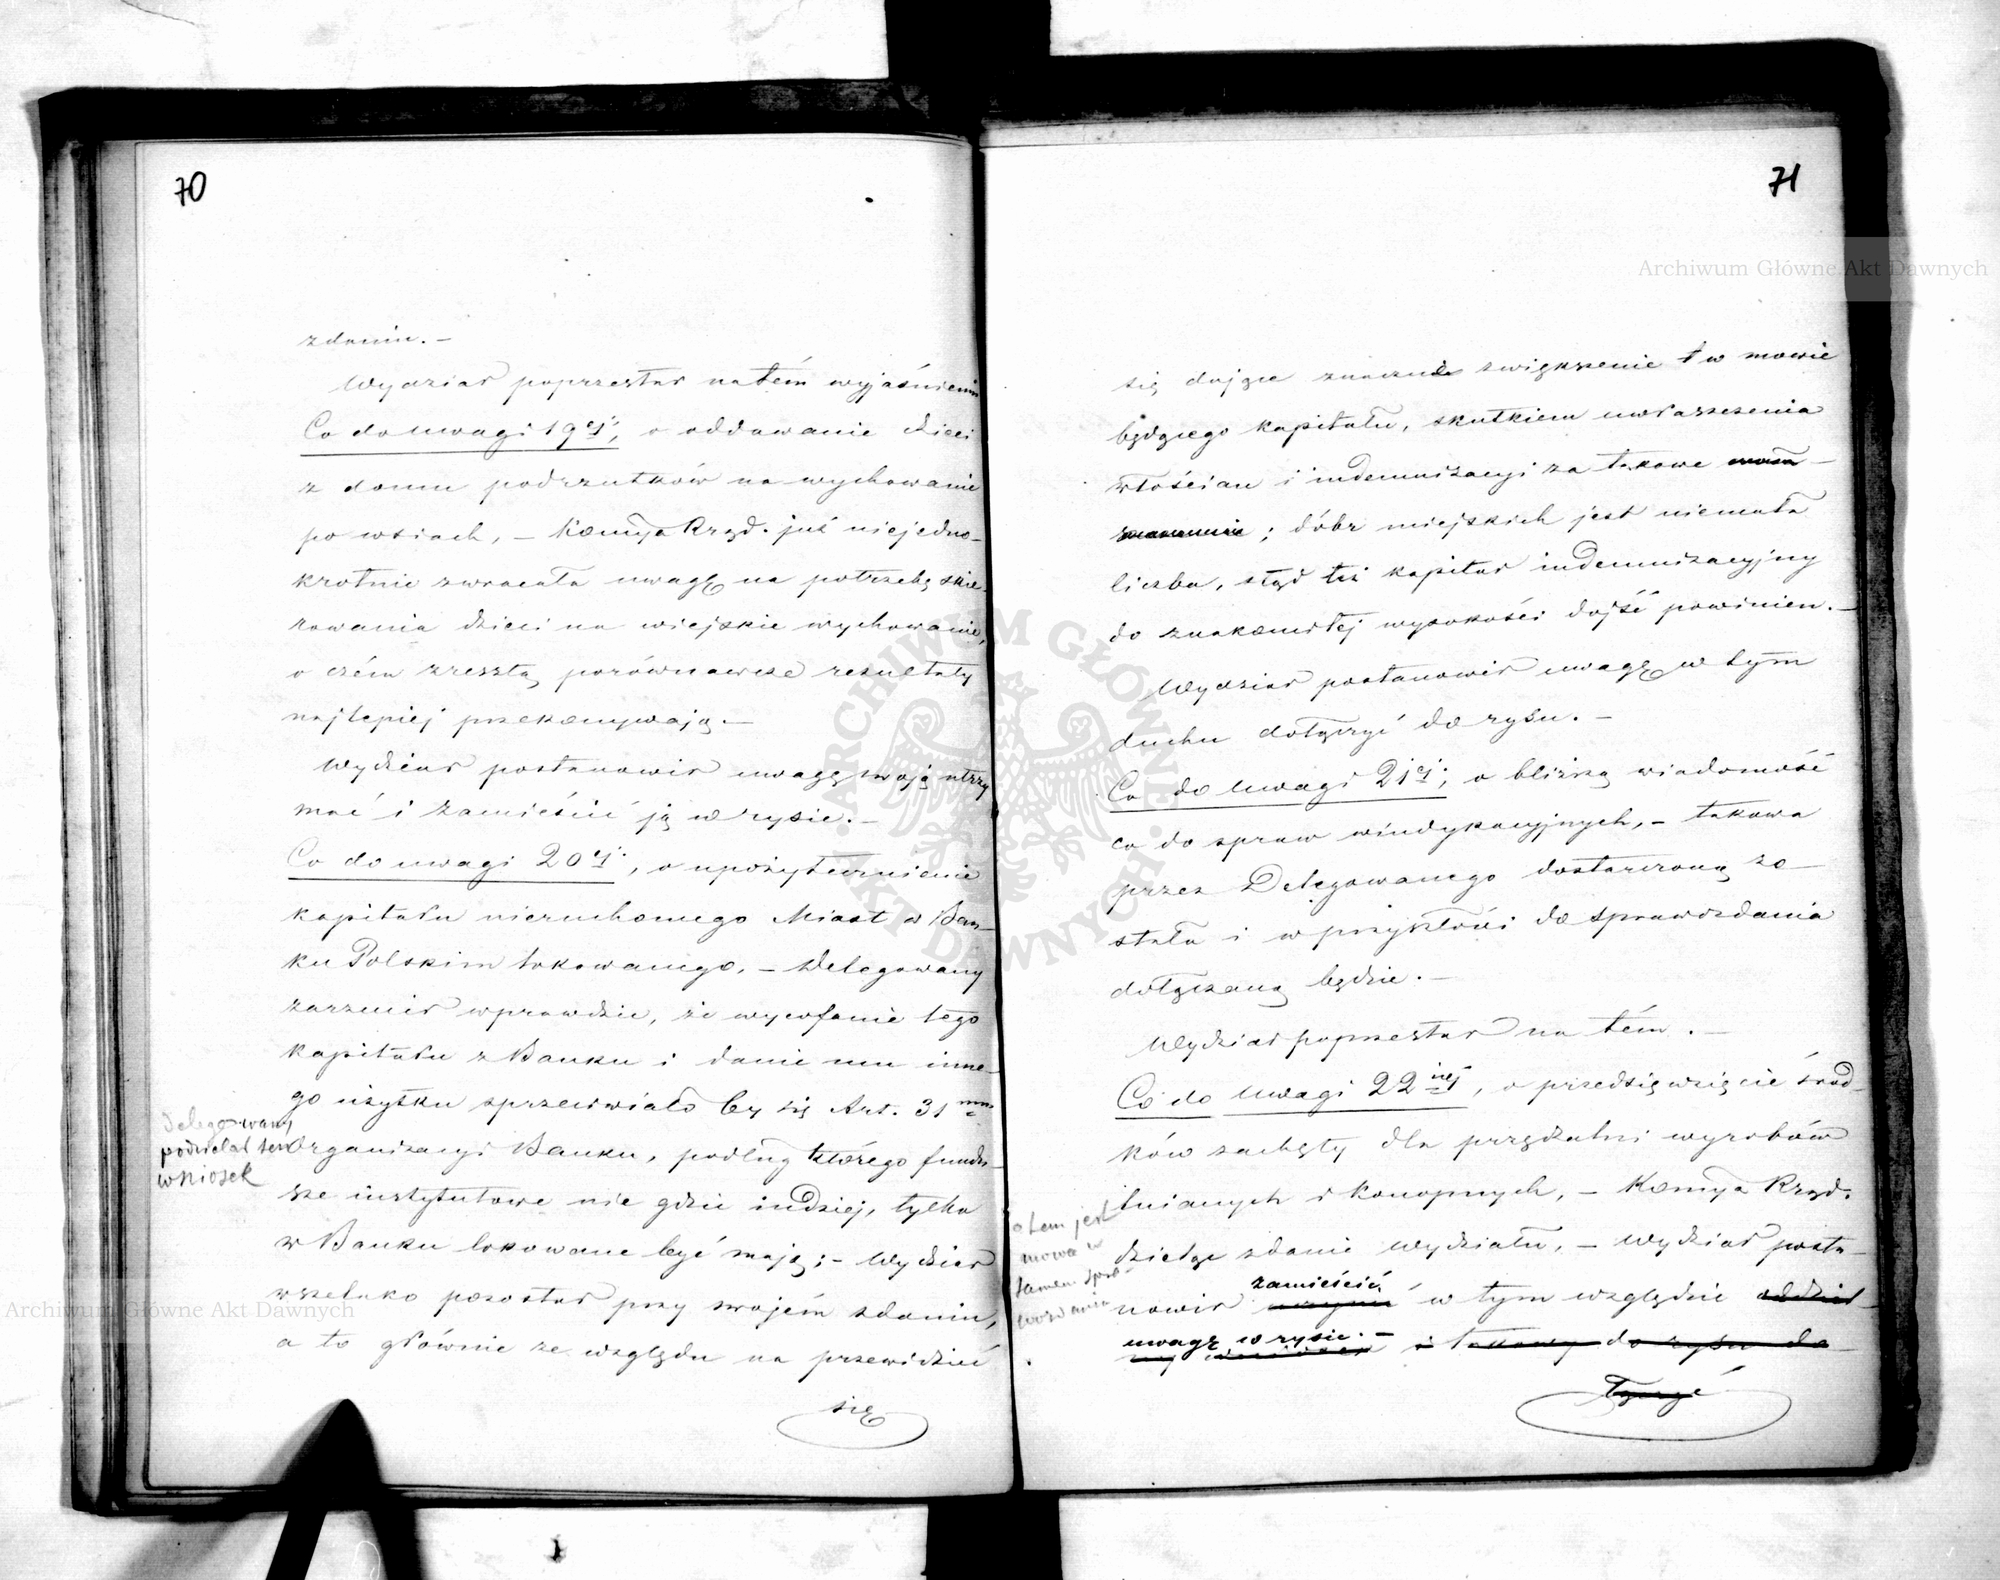 70
zdaniu. –
Wydział poprzestał na tém wyjaśnieniu
Co do uwagi 19ej, o oddawanie dzieci
z domu podrzutków na wychowanie
po wsiach, – Kommya Rząd. już niejedno-
krotnie zwracała uwagę na potrzebę skie-
rowania dzieci na wiejskie wychowanie,
o czém zresztą porównawcze resultaty
najlepiej przekonywają. –
Wydział postanowił uwagę swoją utrzy
mać i zamieścić ją w rysie. –
Co do uwagi 20ej, o upożytecznienie
kapitału nieruchomego Miast w Ban-
ku Polskim lokowanego. – Delegowany
zarzucił wprawdzie, że wycofanie tego
kapitału z Banku i danie mu inne-
go użytku sprzeciwiało by się Art. 31mu
Organizacyi Banku, podług którego fundu-
sze instytutowe nie gdzie indziej, tylko
w Banku lokowane być mają; – Wydział
wszelako pozostał przy swojém zdaniu,
a to głównie ze względu na przewidzieć
się
delegowany
podzielał ten
wniosek
71
się dające znaczne zwiększenie w mowie
będącego kapitału, skutkiem uwłaszczenia
włościan i indemnizacyi za takowe
; dóbr miejskich jest niemała
liczba, ztąd też kapitał indemnizacyjny
do znakomitej wysokości dojść powinien. –
Wydział postanowił uwagę w tym
duchu dołączyć do rysu. –
Co do Uwagi 21ej, o bliższą wiadomość
co do spraw windykacyjnych, – takowa
przez Delegowanego dostarczoną zo-
stała i w przyszłości do sprawozdania
dołączaną będzie. –
Wydział poprzestał na tém. –
Co do Uwagi 22iej, o przedsięwzięcie środ-
ków zachęty dla przędzalni wyrobów
lnianych i konopnych, – Kommya Rząd.
dzieląc zdanie Wydziału, – Wydział posta-
nowił zamieścić w tym względzie oddziel-
uwagę w rysie. – i takowy do rysu do-
łączyć
o tem jest
mowa w
samem spra-
wozdaniu
Archiwum Główne Akt Dawnych
Archiwum Główne Akt Dawnych
ARCHIWUM GŁÓWNE AKT DAWNYCH